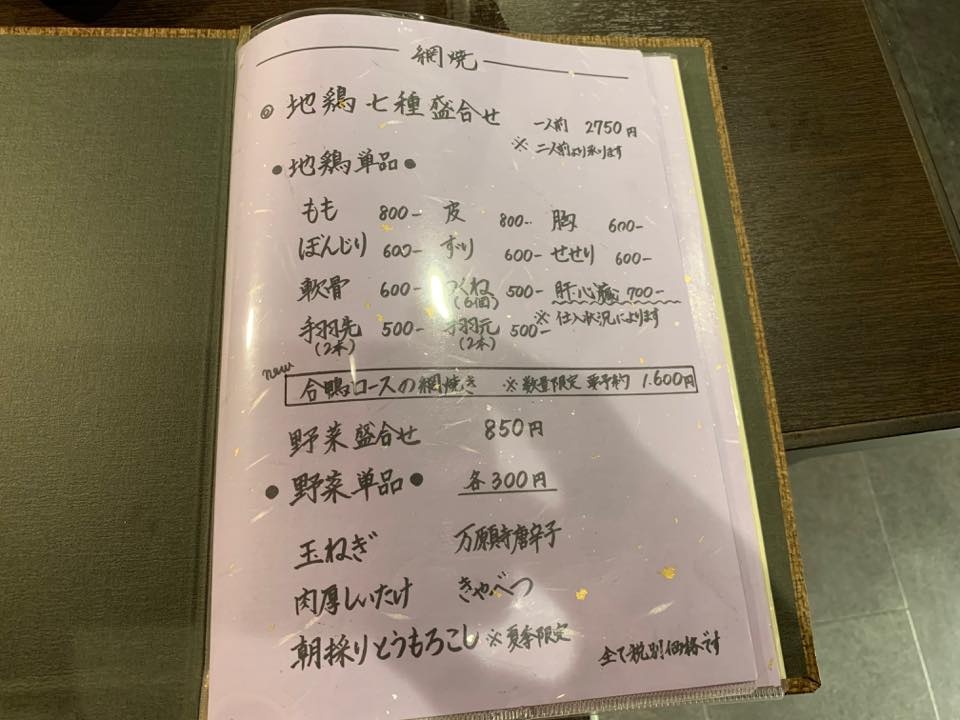 網焼
地鶏七種盛合せ 一人前 2750円
※二人前より承ります
●地鶏単品●
もも 800- 皮 800- 胸 600-
ぼんじり 600- ずり 600- せせり 600-
軟骨 600- つくね 500- 肝心臓 700-
(6個)
※仕入状況によります
手羽先 500- 手羽元 500-
(2本) (2本)
new
合鴨ロースの網焼き ※数量限定 要予約 1.600円
野菜盛合せ 850円
●野菜単品● 各300円
玉ねぎ 万願寺唐辛子
肉厚しいたけ きゃべつ
朝採りとうもろこし ※夏季限定
全て税別価格です